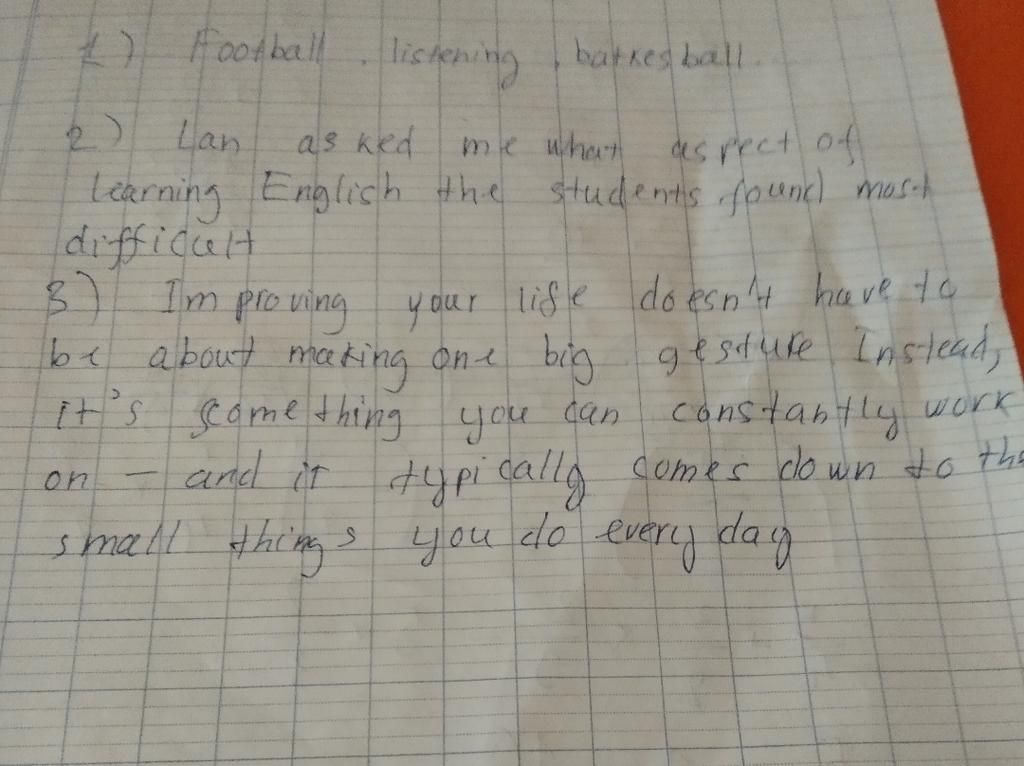 1) Football, listening, batkesball.
2) Lan asked me what aspect of
learning English the students found most
difficult
3) Improving your life doesn't have to
be about making one big gesture Instead,
it's something you can constantly work
on – and it typically comes down to the
small things you do every day